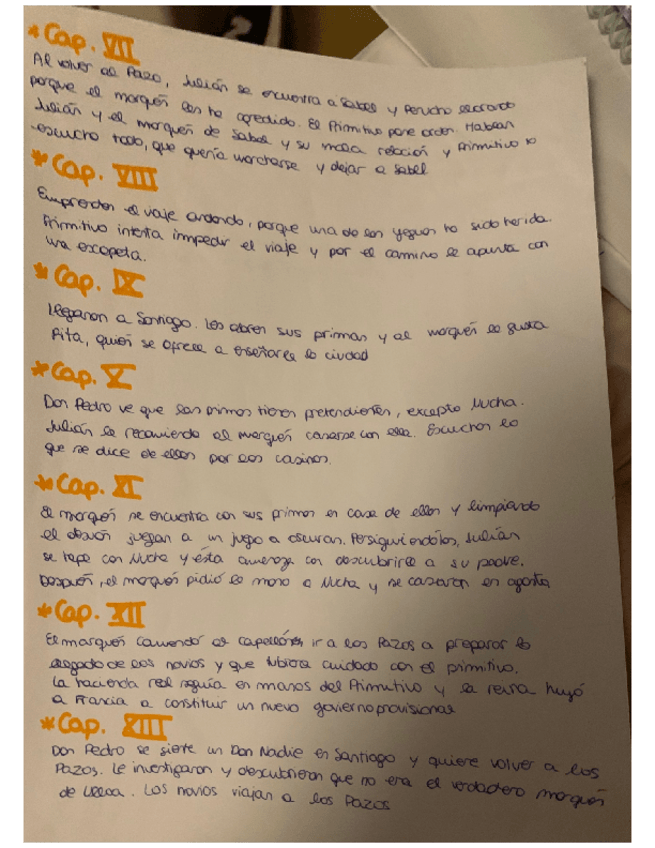 *Cap. VII
Al volver al Pazo, Julián se encuentra a Sabel y Perucho llorando
porque el marqués les ha agredido. El Primitivo pone orden. Hablan
Julián y el marqués de Sabel y su mala relación y Primitivo lo
escucho todo, que quería marcharse y dejar a Sabel
*Cap. VIII
Emprenden el viaje andando, porque una de las yeguas ha sido herida.
Primitivo intenta impedir el viaje y por el camino le apunta con
una escopeta.
*Cap. IX
Llegaron a Santiago. Les abren sus primas y al marqués le gusta
Rita, quien se ofrece a enseñarle la ciudad
*Cap. X
Don Pedro ve que sus primas tienen pretendientes, excepto Nucha.
Julián le recomienda al marqués casarse con ella. Escuchan lo
que se dice de ellos por los casinos.
*Cap. XI
El marqués se encuentra con sus primas en casa de ellas y limpiando
el desván juegan a un juego a oscuras. Persiguiéndolos, Julián
se topa con Nucha y ésta amenaza con descubrirle a su padre.
Después, el marqués pidió la mano a Nucha y se casaron en agosto
*Cap. XII
El marqués comendó al capellán ir a los Pazos a preparar la
llegada de los novios y que tubiera cuidado con el primitivo.
La hacienda real seguía en manos del Primitivo y la reina huyó
a Francia a constituir un nuevo govierno provisional
*Cap. XIII
Don Pedro se siete un Don Nadie en Santiago y quiere volver a los
Pazos. Le investigaron y descubrieron que no era el verdadero marqués
de Ulloa. Los novios viajan a los Pazos